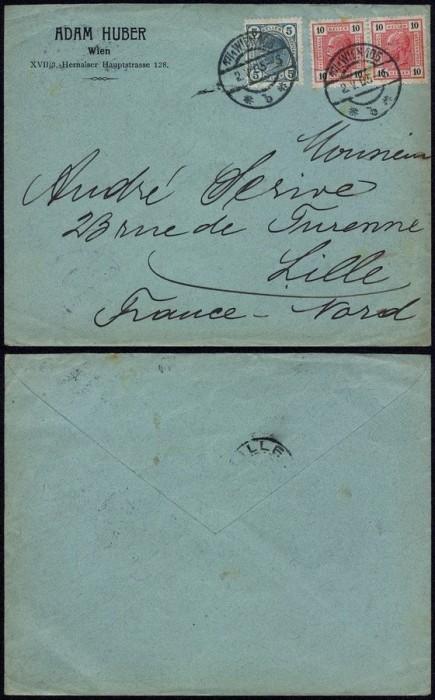 ADAM HUBER
Wien
XVII/3, Hernalser Hauptstrasse 128.
5 HELLER 5
5 5
10 HELLER 10
10 10
WIEN 105
2. V. 05
* b *
Monsieur
André Scrive
23 rue de Turenne
Lille
France - Nord
LILLE